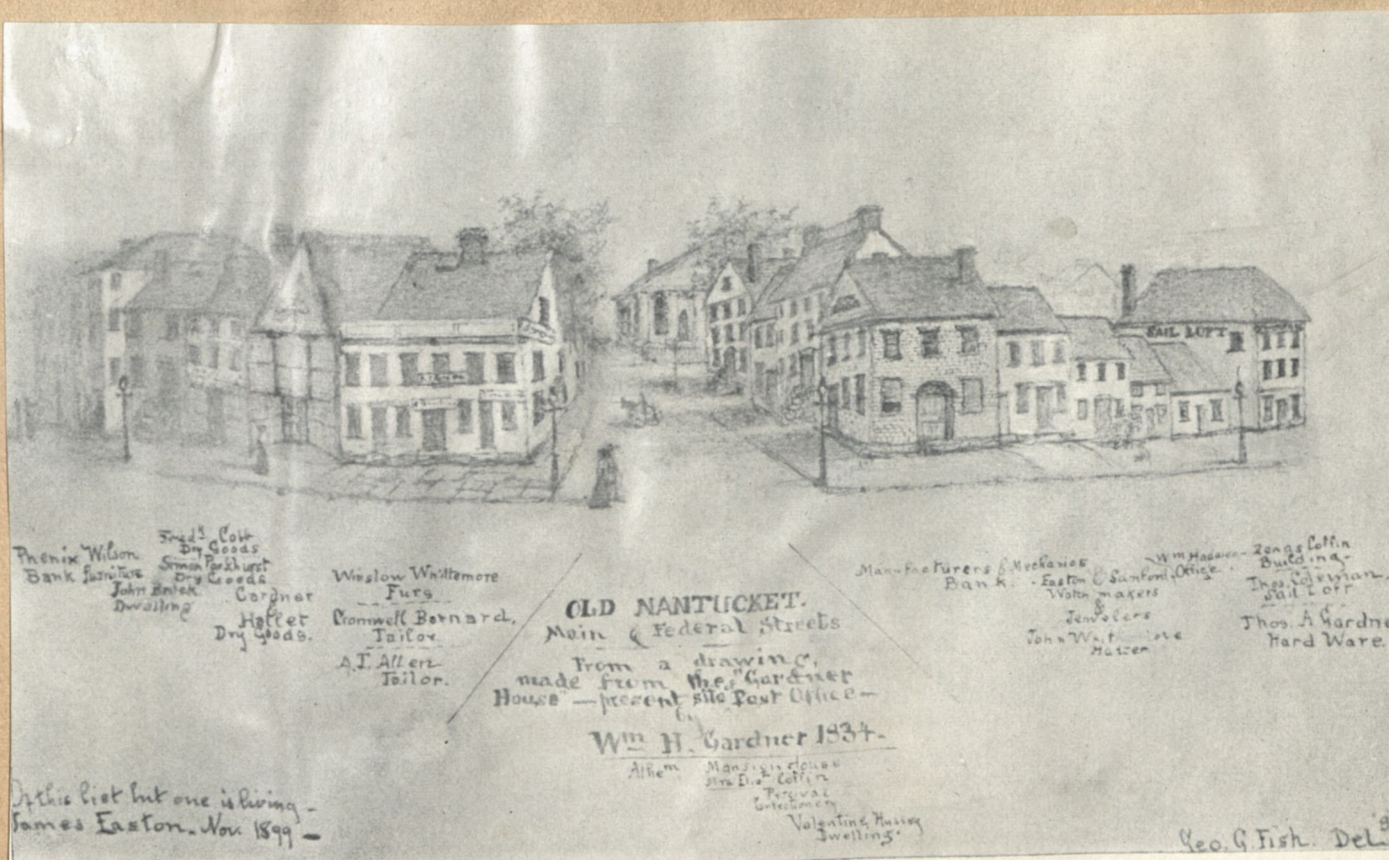 SAIL LOFT
Phenix
Bank
Wilson
Furniture
Fredk Cobb
Dry Goods
Simon Parkhurst
Dry Goods
John Brock
Dwelling
Gardner
&
Hallet
Dry Goods.
Winslow Whittemore
Furs
Cromwell Barnard.
Tailor
A.J. Allen
Tailor.
OLD NANTUCKET.
Main & Federal Streets
From a drawing,
made from the "Gardner
House" — present site Post Office —
by
Wm H. Gardner 1834.
Athem
Mansion House
Mrs Coffin
Percival
Confectionery
Valentine Hussey
Dwelling.
Manufacturers & Mechanics
Bank.
Easton & Sanford.
Watch makers
&
Jewelers
John
Hatter
Wm
Office.
Zenas Coffin
Building
Thos. Coleman
Sail Loft
Thos. A Gardne
Hard Ware.
Of this list but one is living —
James Easton. Nov. 1899 —
Geo. G. Fish. Del